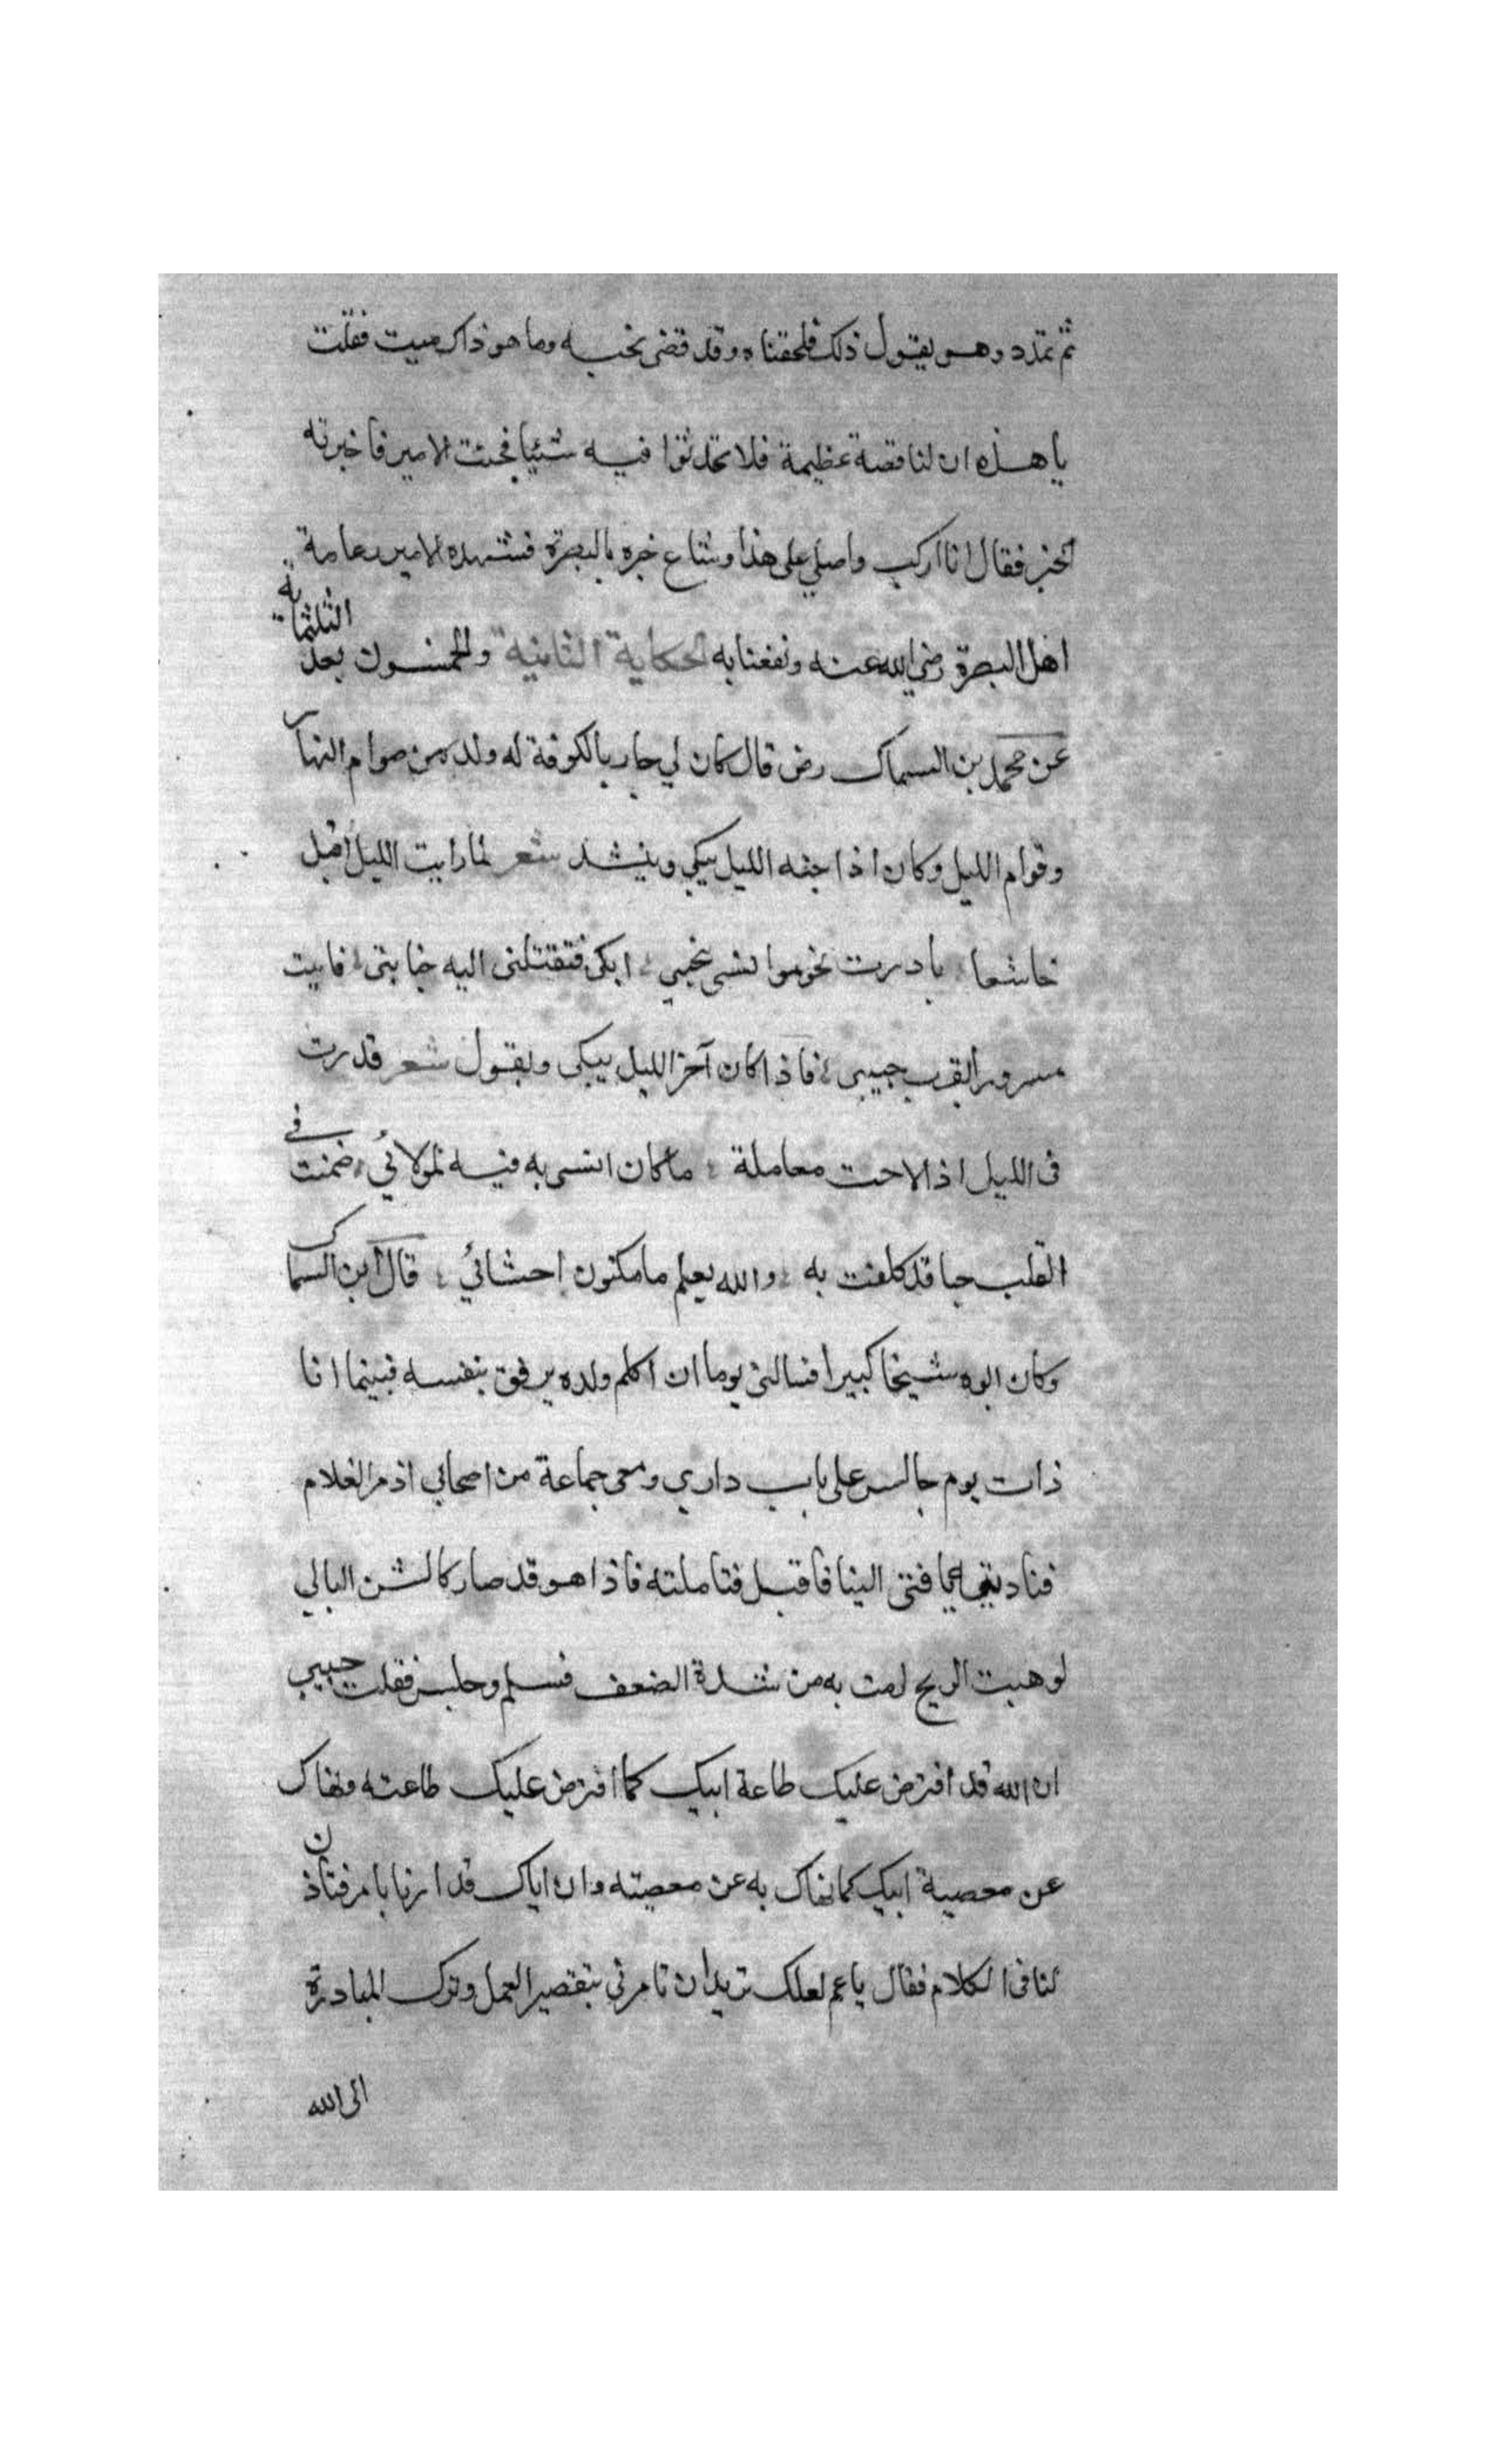 ثم تمدد وهو يقول ذلك فلحقناه وقد قضى نحبه وما هو ذاك ميت فقلت
يا هذه ان لنا قصة عظيمة فلا تحدثوا فيه شيئا فجئت الامير فاخبرته
الخبر فقال انا اركب واصلي على هذا وشاع خبره بالبصرة فشهده الامير وعامة
اهل البصرة رضي الله عنه ونفعنا به الحكاية الثانية والخمسون بعد الثلثمائة
عن محمد بن السماك رض قال كان لي جار بالكوفة له ولد من صوام النهار
وقوام الليل وكان اذا جنه الليل يبكي وينشد شعر لما رايت الليل اقبل
خاشعا بادرت نحو موانسي نحيبي ابكي فتقتلني اليه فابيت
مسرورا بقرب حبيبي فاذا كان آخر الليل يبكي ويقول شعر قد رت
في الليل اذ لاحت معاملة ما كان انسي به فيه لمولائي ضمنت في
القلب حبا قد كلفت به والله يعلم ما مكنون احشائي قال ابن السماك
وكان ابوه شيخا كبيرا فسالني يوما ان اكلم ولده يرفق بنفسه فبينما انا
ذات يوم جالس على باب داري ومعي جماعة من اصحابي اذ مر الغلام
فناديته فتى الينا فاقبل فتاملته فاذا هو قد صار كالشن البالي
لو هبت الريح لرمت به من شدة الضعف فسلم وجلس فقلت حبيبي
ان الله قد افترض عليك طاعة ابيك كما افترض عليك طاعته ونهاك
عن معصية ابيك كما نهاك به عن معصيته وان اباك قد بامر فتاذن
لنا في الكلام فقال يا عم لعلك تريد ان تامرني بتقصير العمل وترك المبادرة
الى الله